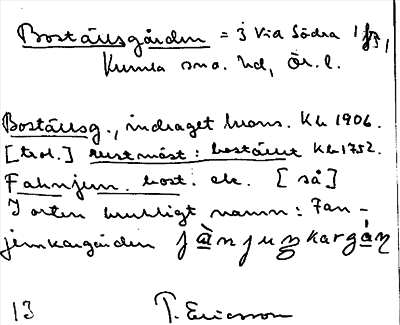 Bostäusgården = 3 Via Södra
Kumla sn o. hd, Ör. l.
Bostäusg., indraget brons. Kh 1906.
[trol.] rustmäst: bostället Kh 1752.
Fahnjun. bost. ek. [så]
I orten muntligt namn: Fan-
junkargården
13 T. Ericsson